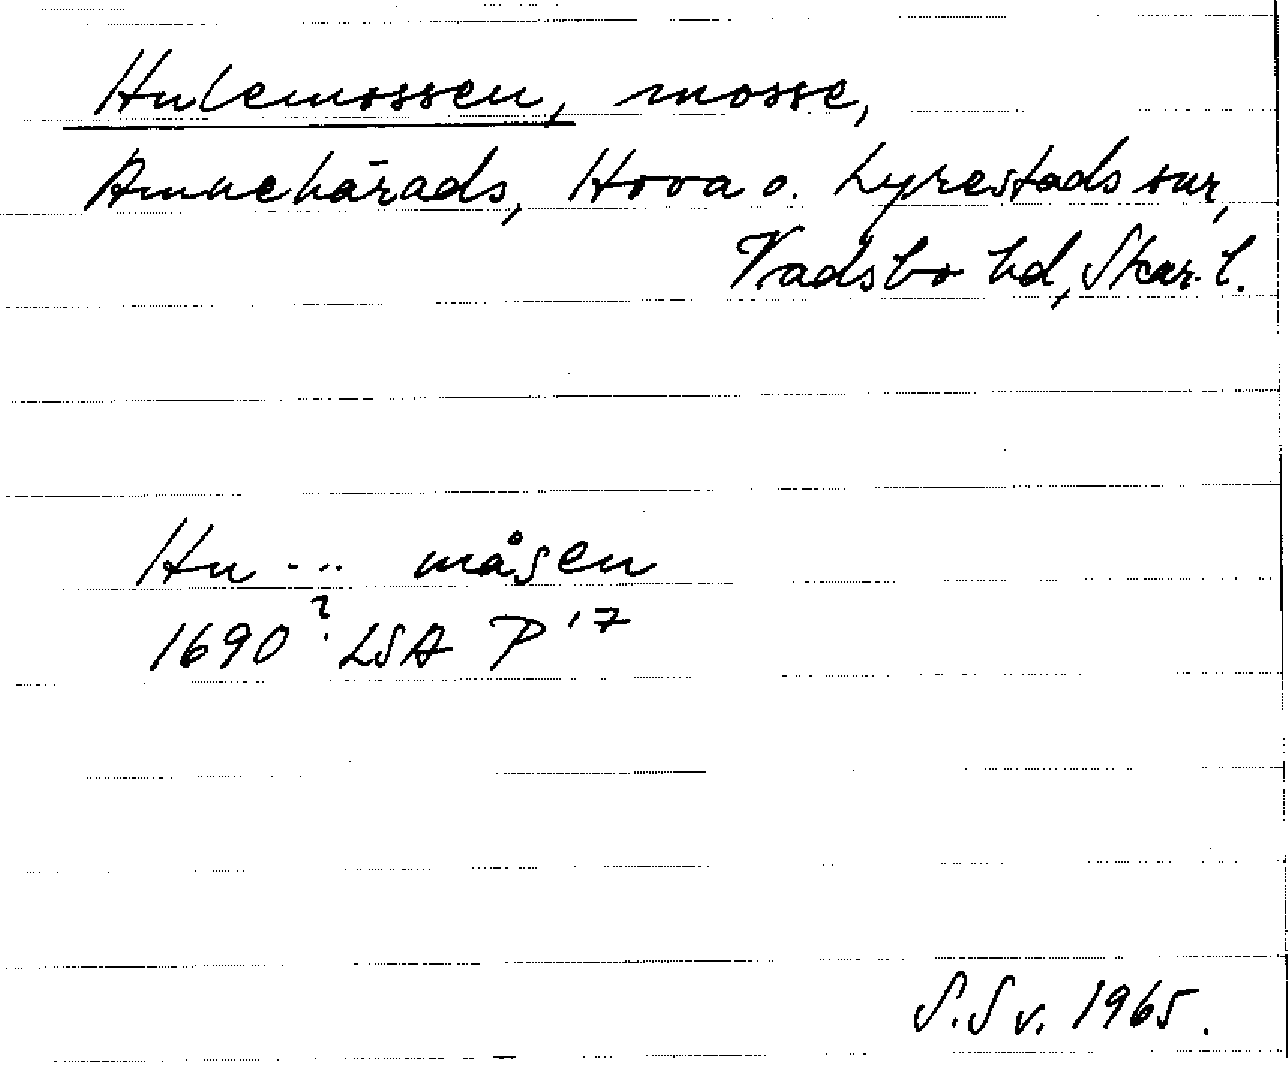 Hulemossen, mosse,
Amnehärads, Hova o. Lyrestads snr,
Vadsbo hd, Skar. l.
Hu ... måsen
1690? LSA P 17
S. Sv. 1965.